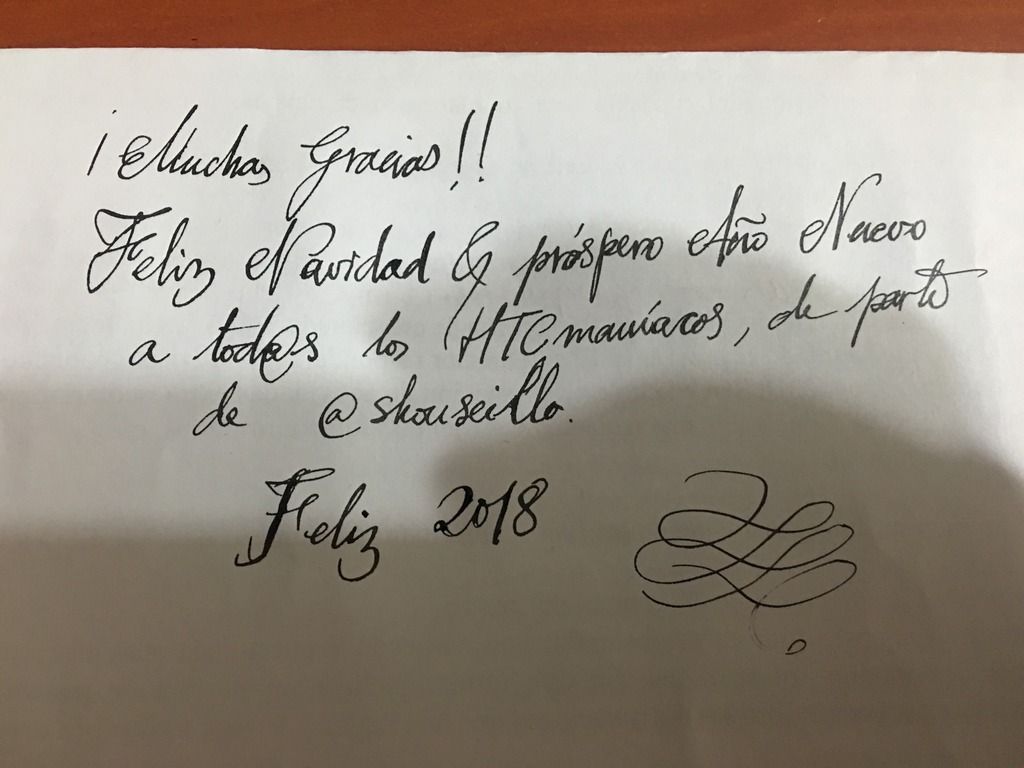 ¡Muchas Gracias!!
Feliz Navidad & próspero Año Nuevo
a tod@s los HTCmaníacos, de parte
de @skouseillo.
Feliz 2018